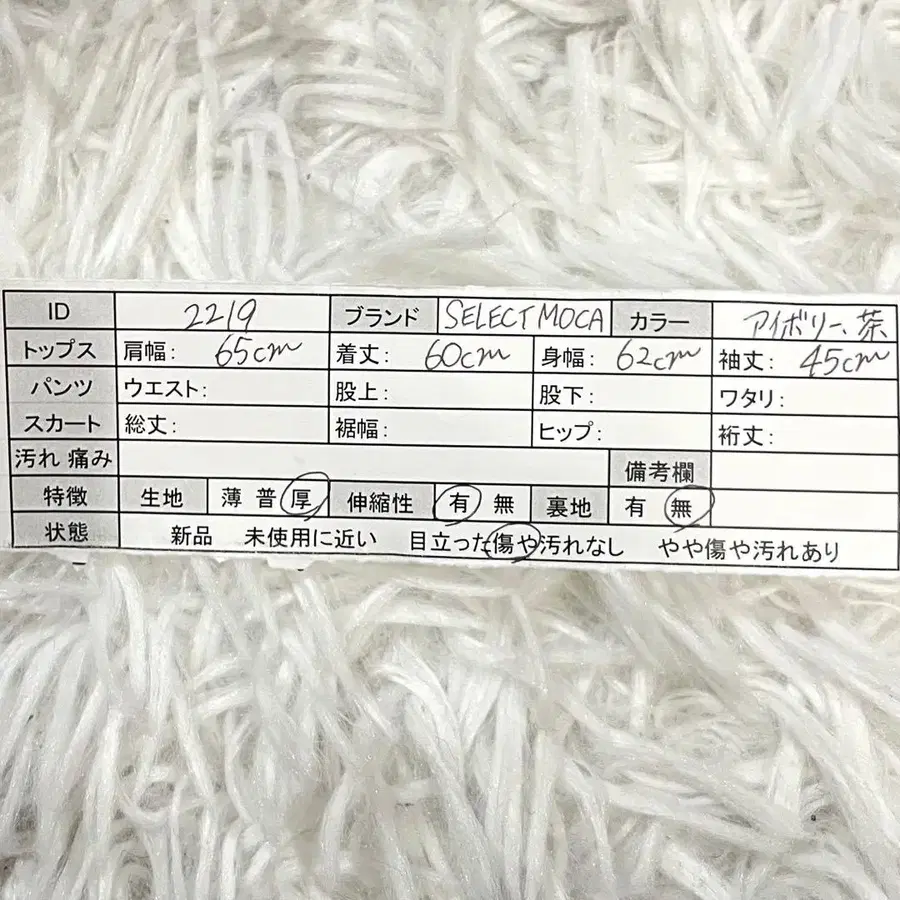 ID 2219 ブランド SELECT MOCA カラー アイボリー、茶
トップス 肩幅: 65cm 着丈: 60cm 身幅: 62cm 袖丈: 45cm
パンツ ウエスト: 股上: 股下: ワタリ:
スカート 総丈: 裾幅: ヒップ: 裄丈:
汚れ 痛み 備考欄
特徴 生地 薄 普 厚 伸縮性 有 無 裏地 有 無
状態 新品 未使用に近い 目立った傷や汚れなし やや傷や汚れあり